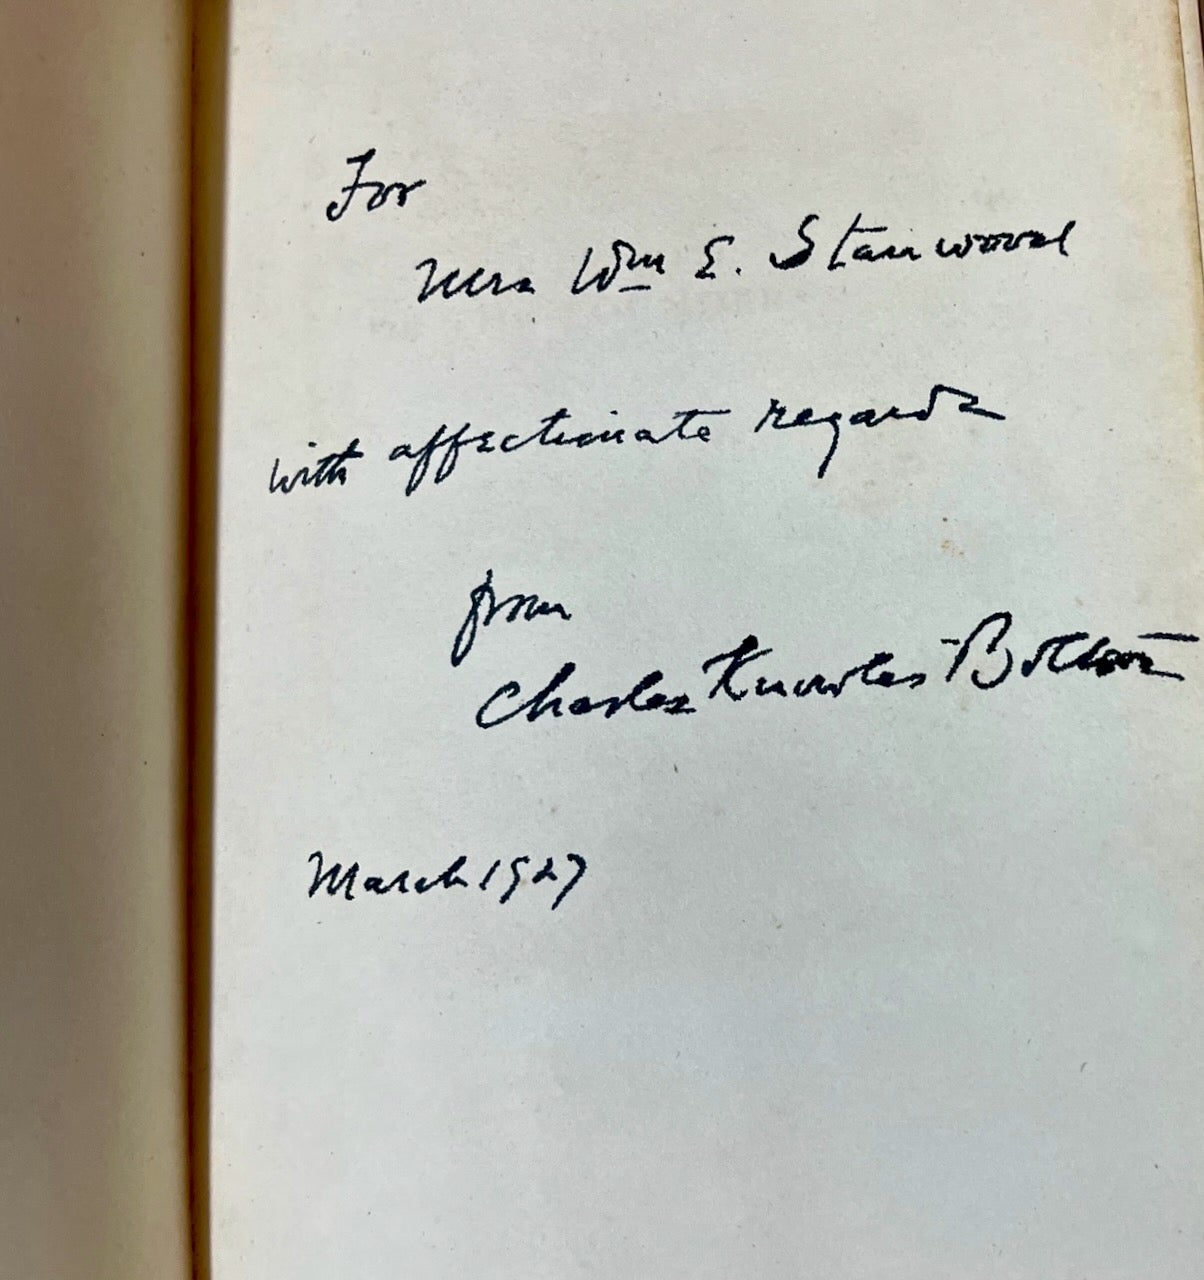 For
Mrs Wm E. Stanwood
with affectionate regards
from
Charles Knowles Bolton
March 1927